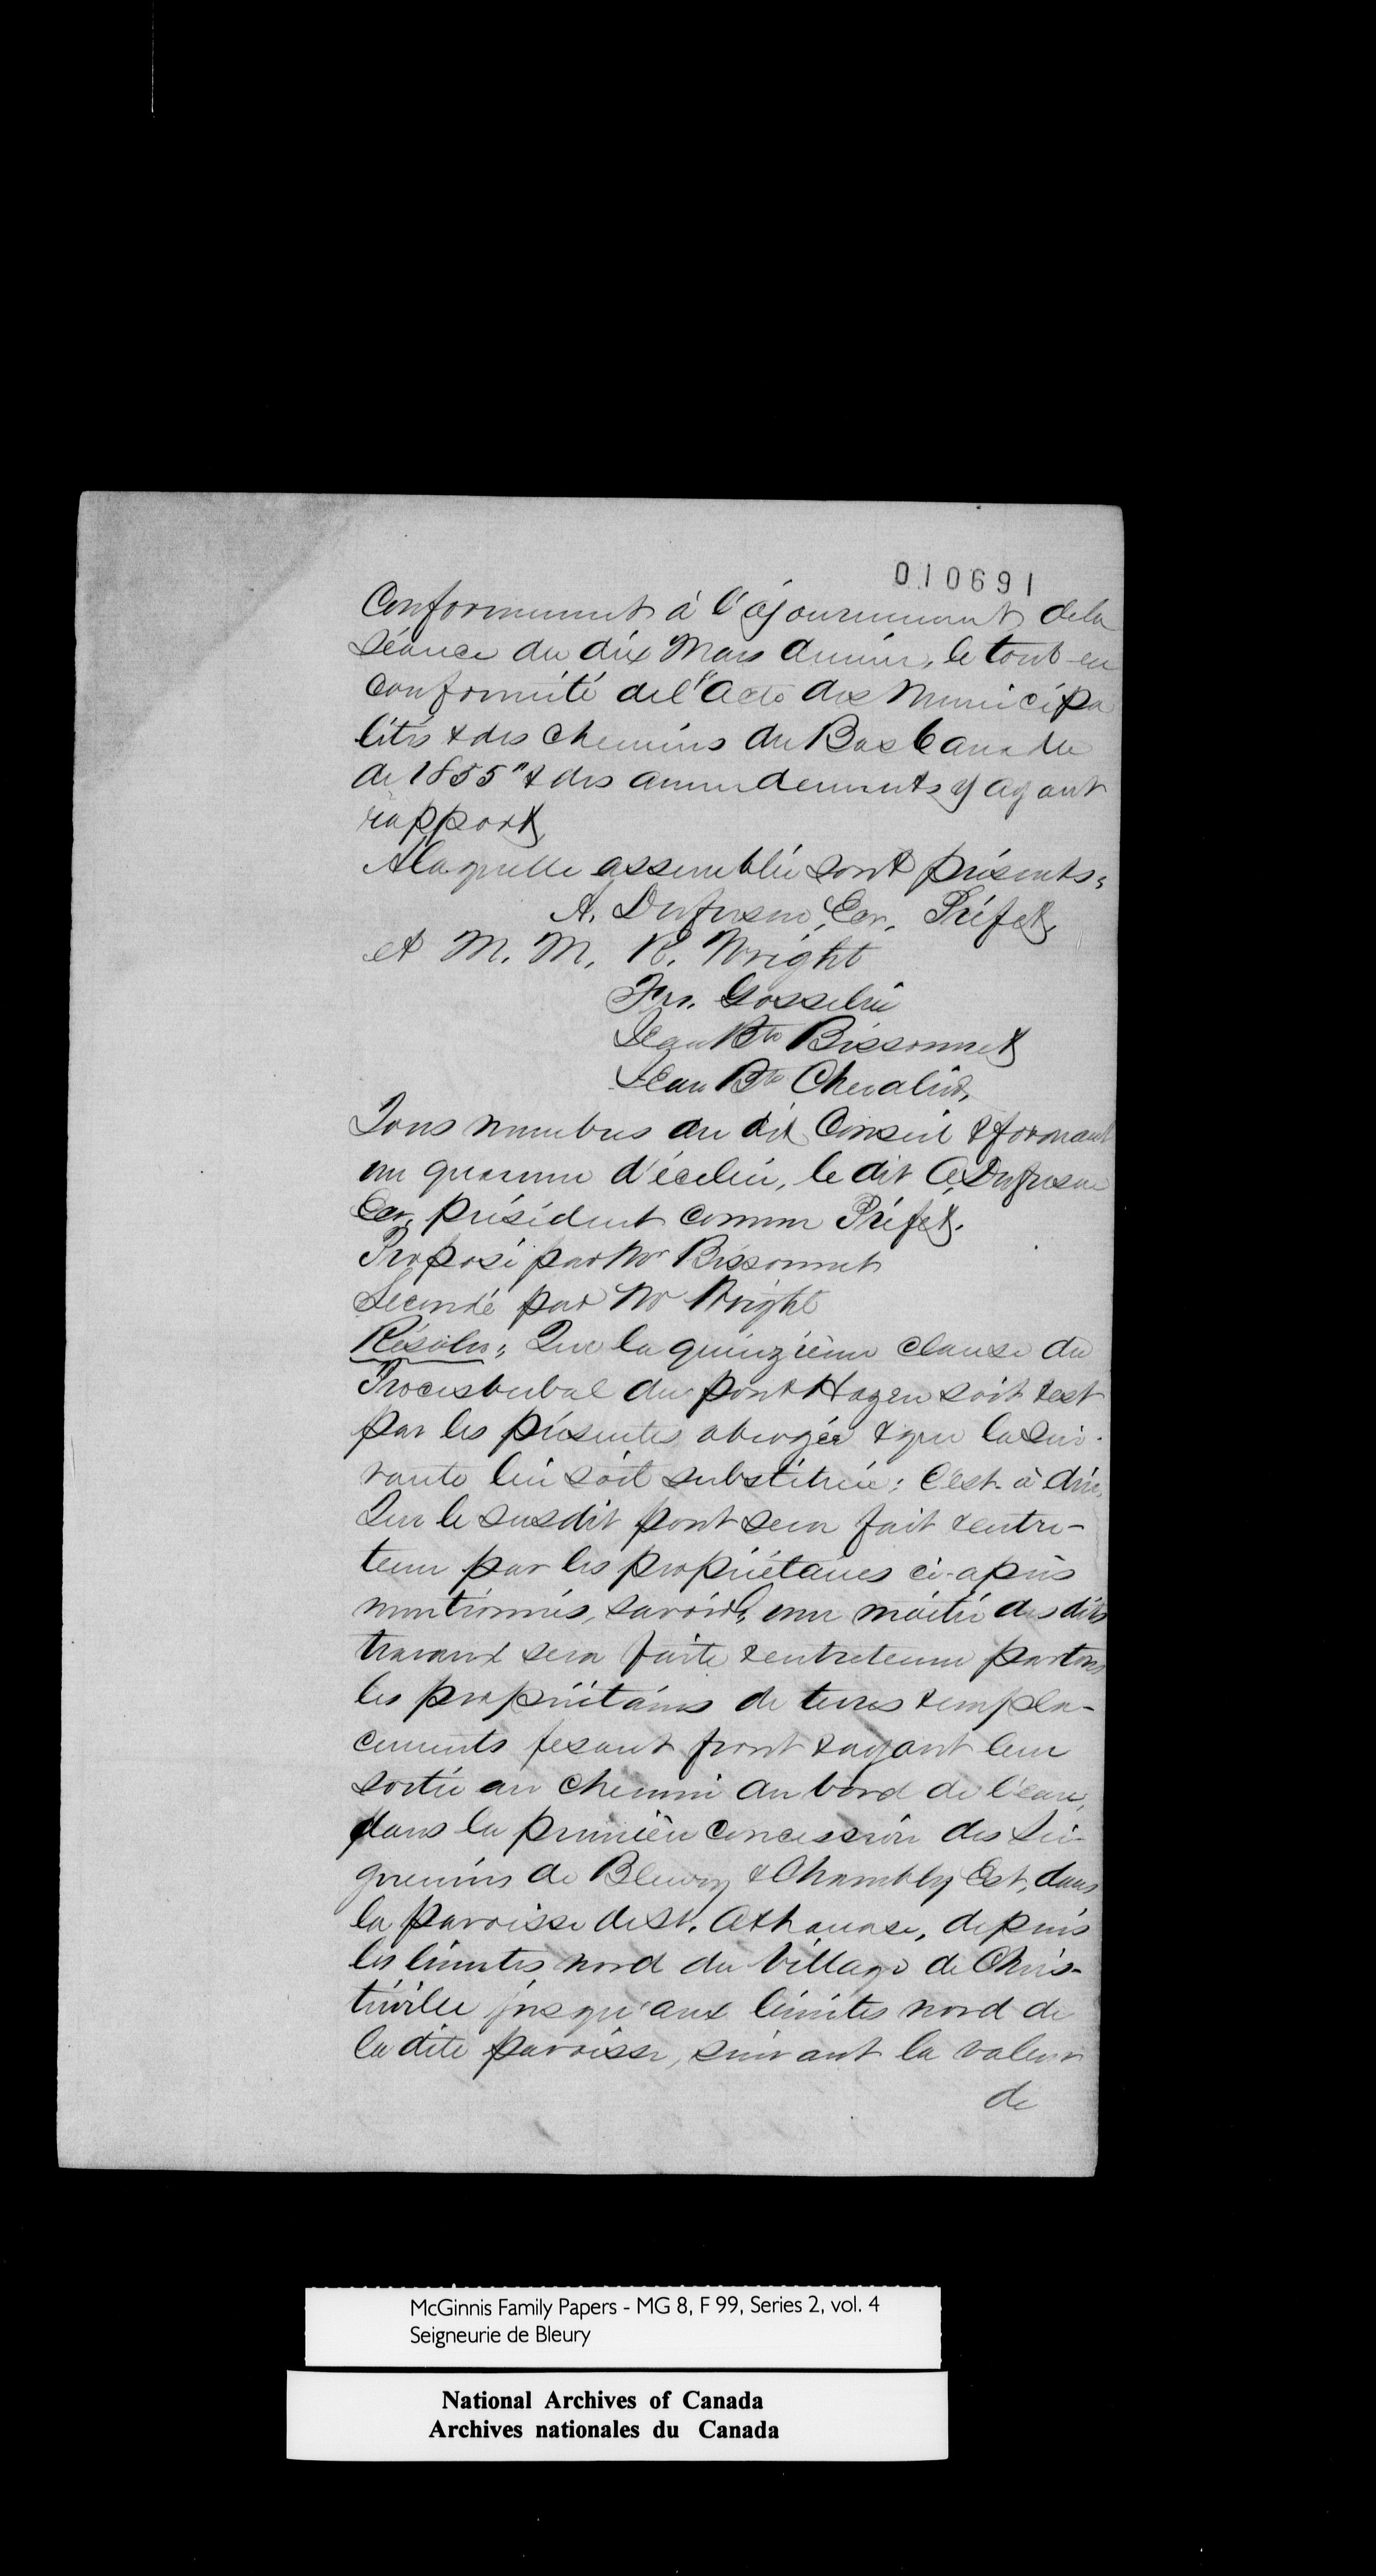 010691
Conformement à l'ajournement de la
séance du dix Mars dernier, le tout en
conformité de l'"Acte des Municipa
lités & des chemins du Bas Canada
de 1855" & des amendements y ayant
rapport,
A laquelle assemblée sont présents:
A. Dufresne, Ecr. Préfet,
et M. M. R. Wright
Frs. Gosselin
Jean Bte Bissonnet
Jean Bte Chevalier,
Tous membres du dit Conseil & formant
un quorum d'icelui, le dit A. Dufresne
Ecr, président comme Préfet.
Proposé par Mr Bissonnet
Secondé par Mr Wright
Résolu: Que la quinzième clause du
Procesverbal du pont Hazen soit & est
par les présentes abrogée & que la sui-
vante lui soit substituée: C'est-à dire,
Que le susdit pont sera fait & entre-
tenu par les propriétaires ci-après
mentionnés, savoir; une moitié des dits
travaux sera faite & entretenue par tous
les propriétaires de terres & empla-
cements fesant front & ayant leur
sortie au chemin du bord de l'eau,
dans la première concession des Sei-
gneuries de Bleury & Chambly Est, dans
la paroisse de St. Athanase, depuis
les limites nord du Village de Chris-
tieville jusqu'aux limites nord de
la dite paroisse, suivant la valeur
de
McGinnis Family Papers - MG 8, F 99, Series 2, vol. 4
Seigneurie de Bleury
National Archives of Canada
Archives nationales du Canada